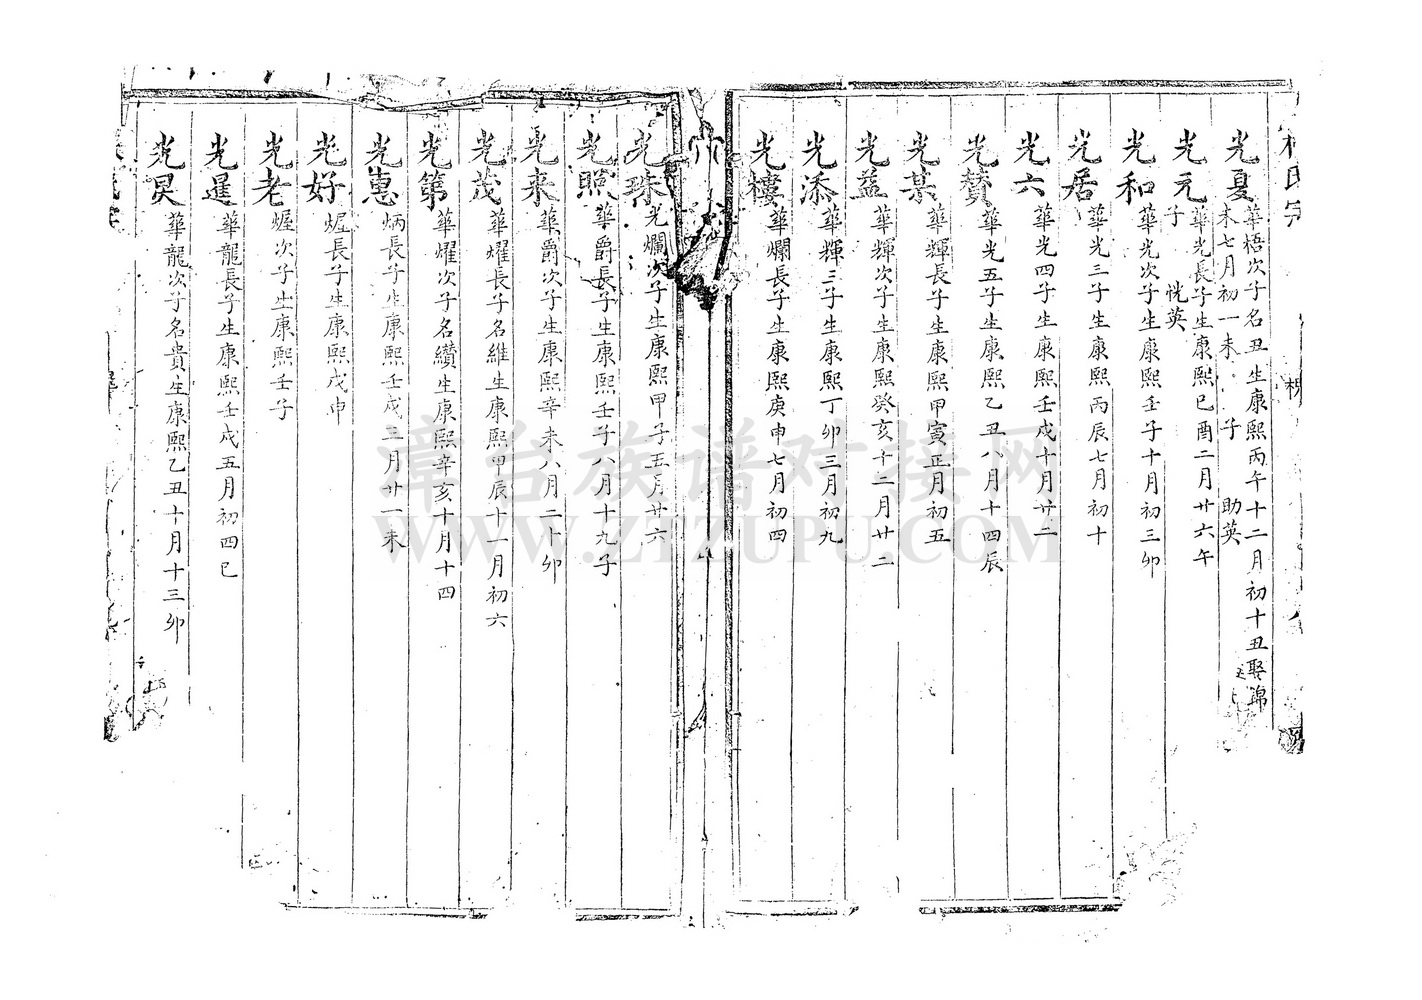 光夏 華梧次子名丑生康熙丙午十二月初十丑娶錦
未七月初一未 子 助英
光元 華光長子生康熙己酉二月廿六午
子 恍英
光和 華光次子生康熙壬子十月初三卯
光居 華光三子生康熙丙辰七月初十
光六 華光四子生康熙壬戌十月廿二
光贊 華光五子生康熙乙丑八月十四辰
光某 華輝長子生康熙甲寅正月初五
光益 華輝次子生康熙癸亥十二月廿二
光添 華輝三子生康熙丁卯三月初九
光樓 華爛長子生康熙庚申七月初四
光珠 光爛次子生康熙甲子五月廿六
光照 華爵長子生康熙壬子八月十九子
光來 華爵次子生康熙辛未八月二十卯
光茂 華燿長子名維生康熙甲辰十一月初六
光第 華燿次子名纘生康熙辛亥十月十四
光惠 炳長子生康熙壬戌三月廿一未
光好 煋長子生康熙戊申
光老 煋次子生康熙壬子
光暹 華龍長子生康熙壬戌五月初四巳
光炅 華龍次子名貴生康熙乙丑十月十三卯
漳台族谱对接网
WWW.ZTZUPU.COM